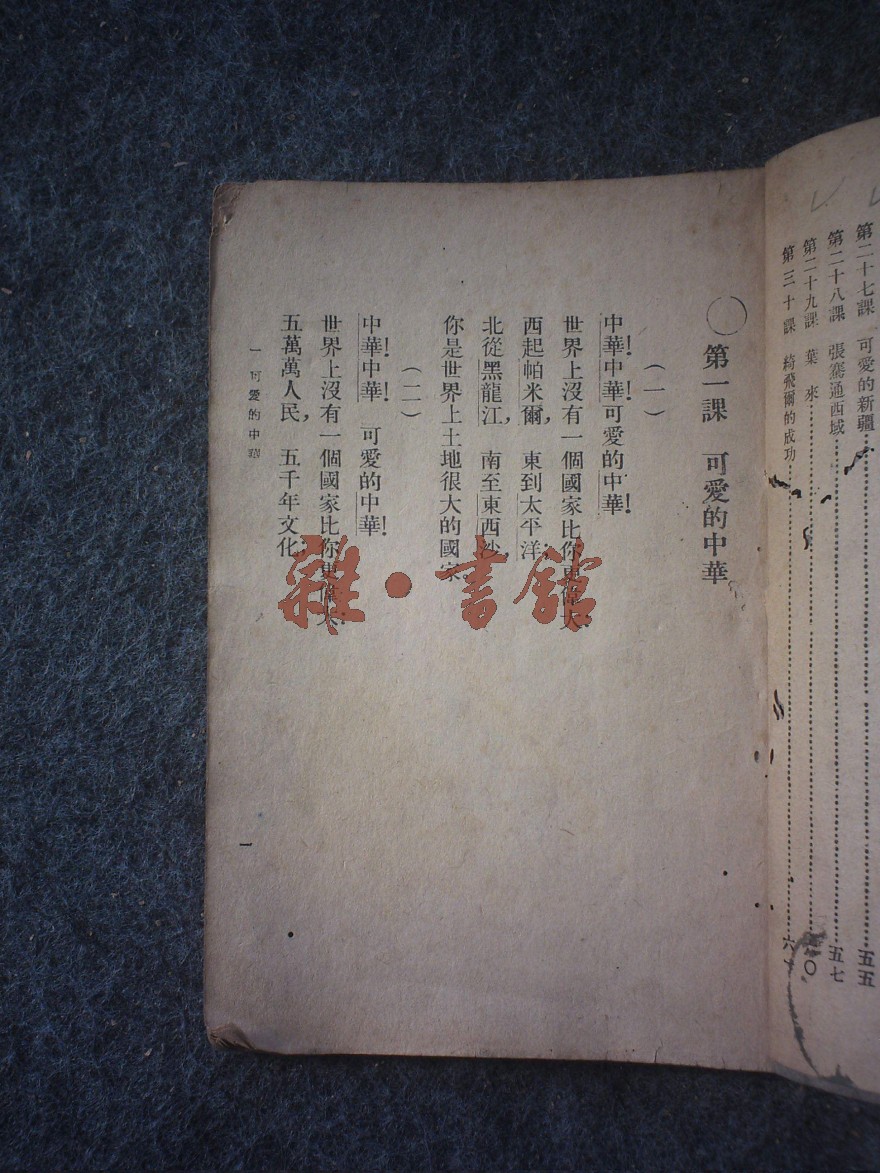 第二十七課 可愛的新疆……五五
第二十八課 張騫通西域……五七
第二十九課 葉米……〇
第三十課 綺飛爾的成功……六
第一課 可愛的中華
(一)
中華!中華!可愛的中華!
世界上沒有一個國家比你更偉大。
西起帕米爾,東到太平洋;
北從黑龍江,南至東西沙,
你是世界上土地很大的國家。
(二)
中華!中華!可愛的中華!
世界上沒有一個國家比你更偉大。
五萬萬人民,五千年文化;
一 可愛的中華
一
雜·書館